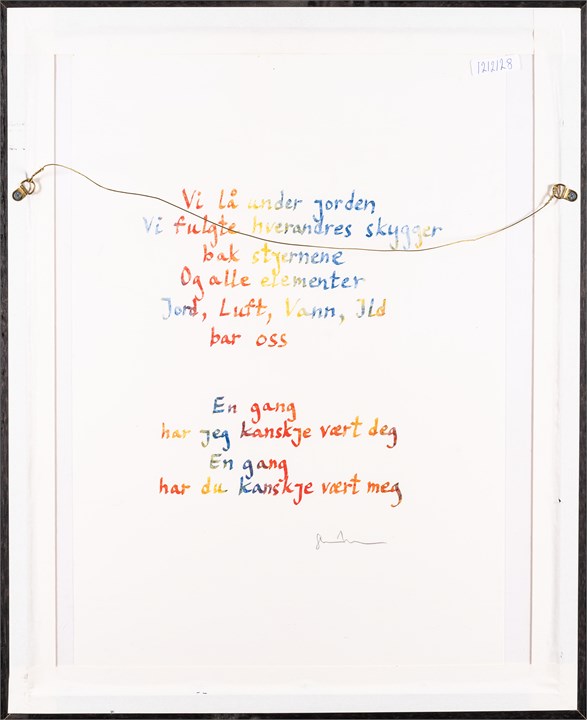 1212128
Vi lå under jorden
Vi fulgte hverandres skygger
bak stjernene
Og alle elementer
Jord, Luft, Vann, Ild
bar oss
En gang
har jeg kanskje vært deg
En gang
har du kanskje vært meg